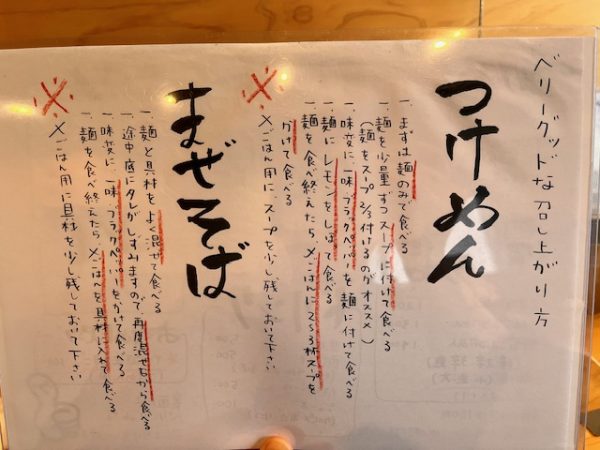 ベリーグッドな召し上がり方
つけめん
一、まずは麺のみで食べる
一、麺を少量ずつスープに付けて食べる
(麺をスープ2/3付けるのがオススメ)
一、味変に、一味、ブラックペッパーを麺に付けて食べる
一、麺にレモンをしぼって食べる
一、麺を食べ終えたら、〆ごはんに2、3杯スープを
かけて食べる
※
〆ごはん用に、スープを少し残しておいて下さい
まぜそば
一、麺と具材をよく混ぜて食べる
一、途中、底にタレがしずみますので、再度混ぜながら食べる
一、味変に、一味、ブラックペッパーをかけて食べる
一、麺を食べ終えたら、〆ごはんを具材に入れて食べる
※
〆ごはん用に具材を少し残しておいて下さい